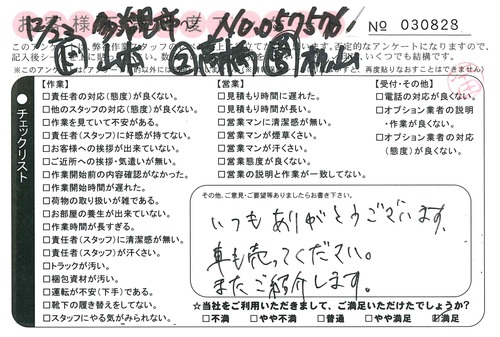 No 030828
【作業】
□責任者の対応(態度)が良くない。
□他のスタッフの対応(態度)が良くない。
□作業を見ていて不安がある。
□責任者(スタッフ)に好感が持てない。
□お客様への挨拶が出来ていない。
□ご近所への挨拶・気遣いが無い。
□作業開始前の内容確認がなかった。
□作業開始時間が遅れた。
□荷物の取り扱いが雑である。
□お部屋の養生が出来ていない。
□作業時間が長すぎる。
□責任者(スタッフ)に清潔感が無い。
□責任者(スタッフ)が汗くさい。
□トラックが汚い。
□梱包資材が汚い。
□運転が不安(下手)である。
□靴下の履き替えをしてない。
□スタッフにやる気がみられない。
【営業】
□見積もり時間に遅れた。
□見積もり時間が長い。
□営業マンに清潔感が無い。
□営業マンが煙草くさい。
□営業マンが汗くさい。
□営業態度が良くない。
□営業の説明と作業が一致してない。
【受付・その他】
□電話の対応が良くない。
□オプション業者の説明
・作業が良くない。
□オプション業者の対応
(態度)が良くない。
チェックリスト
その他、ご意見・ご要望等ありましたらお書き下さい。
いつもありがとうございます。
車も売ってください。
またご紹介します。
☆当社をご利用いただきまして、ご満足いただけたでしょうか?
□不満 □やや不満 □普通 □やや満足 ☑満足